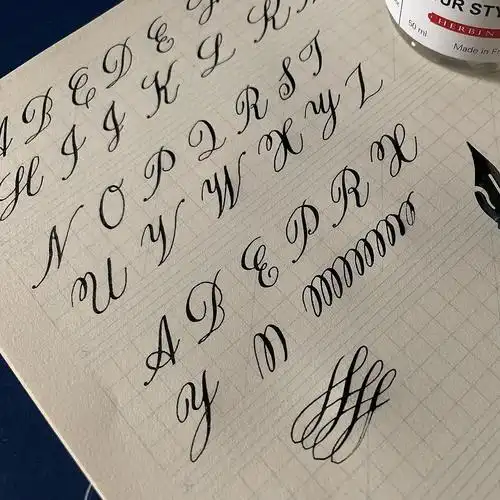 UR STY
HERBIN
50 ml
Made in Fr
A B E D E F
H I J K L K
N O P Q R S T
U V W X Y Z
A D E P R X
Y W